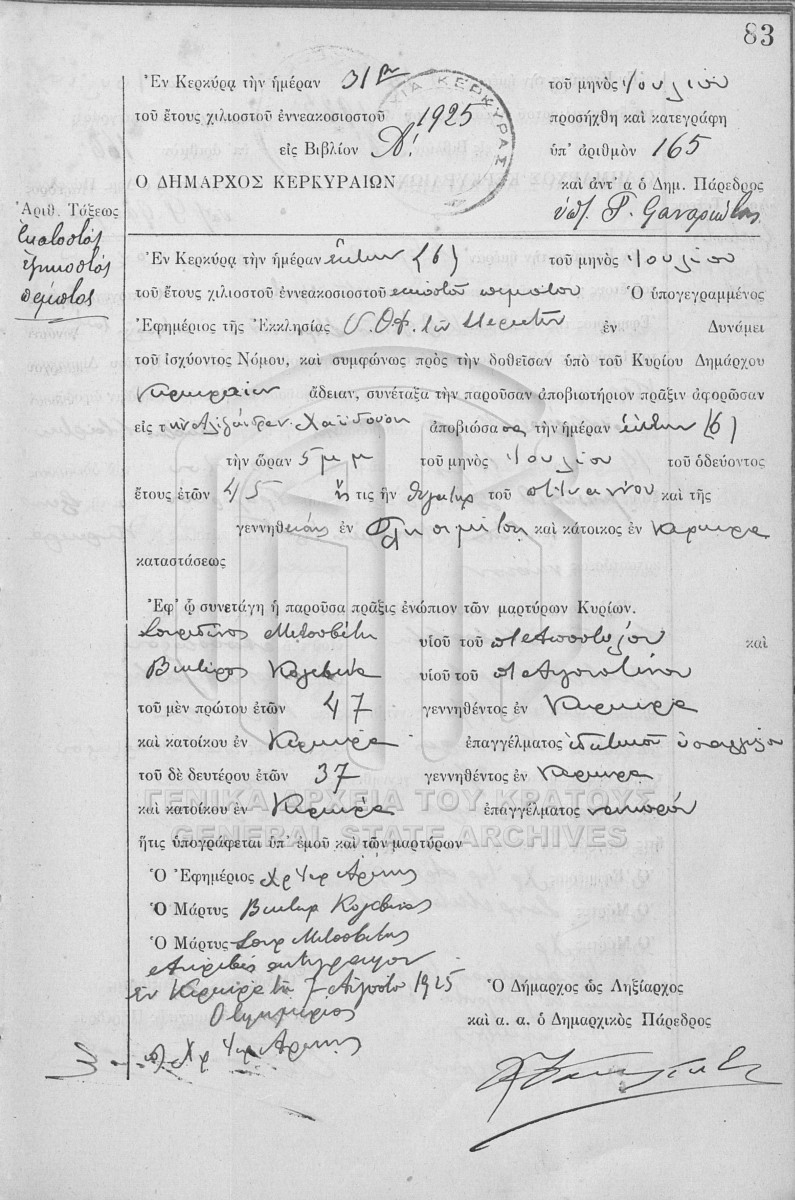 83
Ἐν Κερκύρᾳ τὴν ἡμέραν 31ην τοῦ μηνὸς Ἰουλίου
τοῦ ἔτους χιλιοστοῦ ἐννεακοσιοστοῦ 1925 προσήχθη καὶ κατεγράφη
εἰς Βιβλίον Α΄. ὑπ' ἀριθμὸν 165
ΚΕΡΚΥΡΑΣ
Ο ΔΗΜΑΡΧΟΣ ΚΕΡΚΥΡΑΙΩΝ καὶ ἀντ' α ὁ Δημ. Πάρεδρος
Ἀριθ. Τάξεως
ἑκατοστὸς
ἑξηκοστὸς
πέμπτος
Ἐν Κερκύρᾳ τὴν ἡμέραν ἕκτην (6) τοῦ μηνὸς Ἰουλίου
τοῦ ἔτους χιλιοστοῦ ἐννεακοσιοστοῦ εἰκοστοῦ πέμπτου Ὁ ὑπογεγραμμένος
Ἐφημέριος τῆς Ἐκκλησίας ἐν Δυνάμει
τοῦ ἰσχύοντος Νόμου, καὶ συμφώνως πρὸς τὴν δοθεῖσαν ὑπὸ τοῦ Κυρίου Δημάρχου
Κερκυραίων ἄδειαν, συνέταξα τὴν παροῦσαν ἀποβιωτήριον πρᾶξιν ἀφορῶσαν
εἰς τὴν Ἀλεξάνδραν ἀποβιώσασαν τὴν ἡμέραν ἕκτην (6)
τὴν ὥραν 5 μ μ τοῦ μηνὸς Ἰουλίου τοῦ ὁδεύοντος
ἔτους ἐτῶν 45 ἥτις ἦν θυγάτηρ τοῦ καὶ τῆς
γεννηθείσης ἐν καὶ κάτοικος ἐν Κερκύρᾳ
καταστάσεως
Ἐφ' ᾧ συνετάγη ἡ παροῦσα πρᾶξις ἐνώπιον τῶν μαρτύρων Κυρίων.
Σπυρίδωνος υἱοῦ τοῦ π Ἀποστόλου καὶ
Βίκτωρος Κολεβινᾶ υἱοῦ τοῦ π Αὐγουστίνου
τοῦ μὲν πρώτου ἐτῶν 47 γεννηθέντος ἐν Κερκύρᾳ
καὶ κατοίκου ἐν Κερκύρᾳ ἐπαγγέλματος ἰδιωτικοῦ ὑπαλλήλου
τοῦ δὲ δευτέρου ἐτῶν 37 γεννηθέντος ἐν Κερκύρᾳ
καὶ κατοίκου ἐν Κερκύρᾳ ἐπαγγέλματος νεωκόρου
ΓΕΝΙΚΑ ΑΡΧΕΙΑ ΤΟΥ ΚΡΑΤΟΥΣ
GENERAL STATE ARCHIVES
ἥτις ὑπογράφεται ὑπ' ἐμοῦ καὶ τῶν μαρτύρων
Ὁ Ἐφημέριος
Ὁ Μάρτυς Βίκτωρ Κολεβινᾶς
Ὁ Μάρτυς Σπυρ
Ἀκριβὲς ἀντίγραφον
Ἐν Κερκύρᾳ τῇ 7 Αὐγούστου 1925
Ὁ Ἐφημέριος
Ὁ Δήμαρχος ὡς Ληξίαρχος
καὶ α. α. ὁ Δημαρχικὸς Πάρεδρος